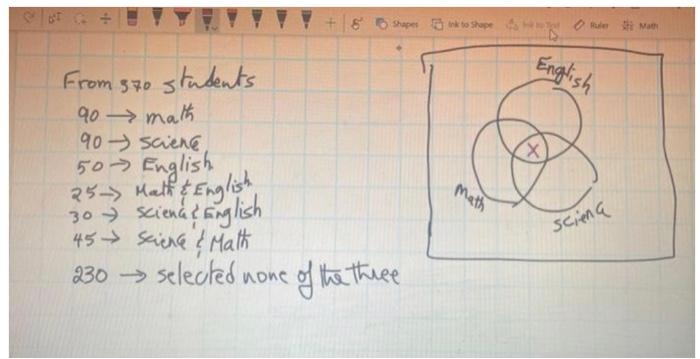 Shapes
Ink to Shape
Ink to Text
Ruler
Math
From 370 students
90 → math
90 → science
50 → English
25 → Math & English
30 → science & English
45 → science & Math
230 → selected none of the three
English
X
Math
science